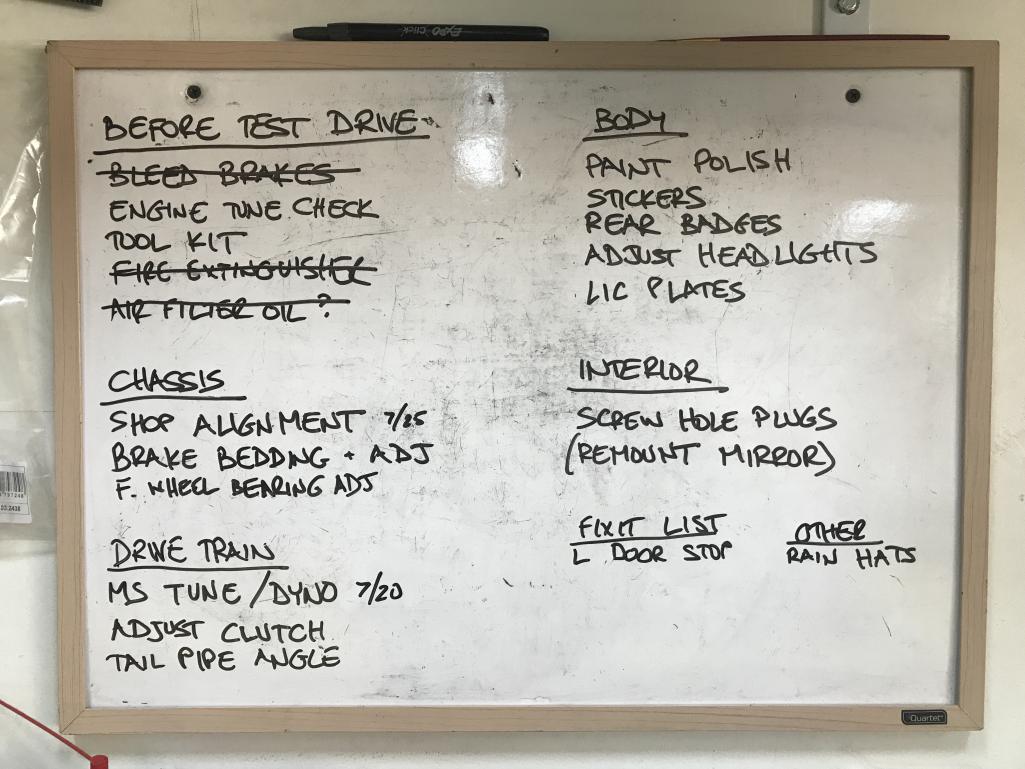 EXPO CLICK
BEFORE TEST DRIVE
BLEED BRAKES
ENGINE TUNE CHECK
TOOL KIT
FIRE EXTINGUISHER
AIR FILTER OIL ?
CHASSIS
SHOP ALIGNMENT 7/25
BRAKE BEDDING + ADJ
F. WHEEL BEARING ADJ
DRIVE TRAIN
MS TUNE / DYNO 7/20
ADJUST CLUTCH
TAIL PIPE ANGLE
BODY
PAINT POLISH
STICKERS
REAR BADGES
ADJUST HEADLIGHTS
LIC PLATES
INTERIOR
SCREW HOLE PLUGS
(REMOUNT MIRROR)
FIXIT LIST
L DOOR STOP
OTHER
RAIN HATS
Quartet